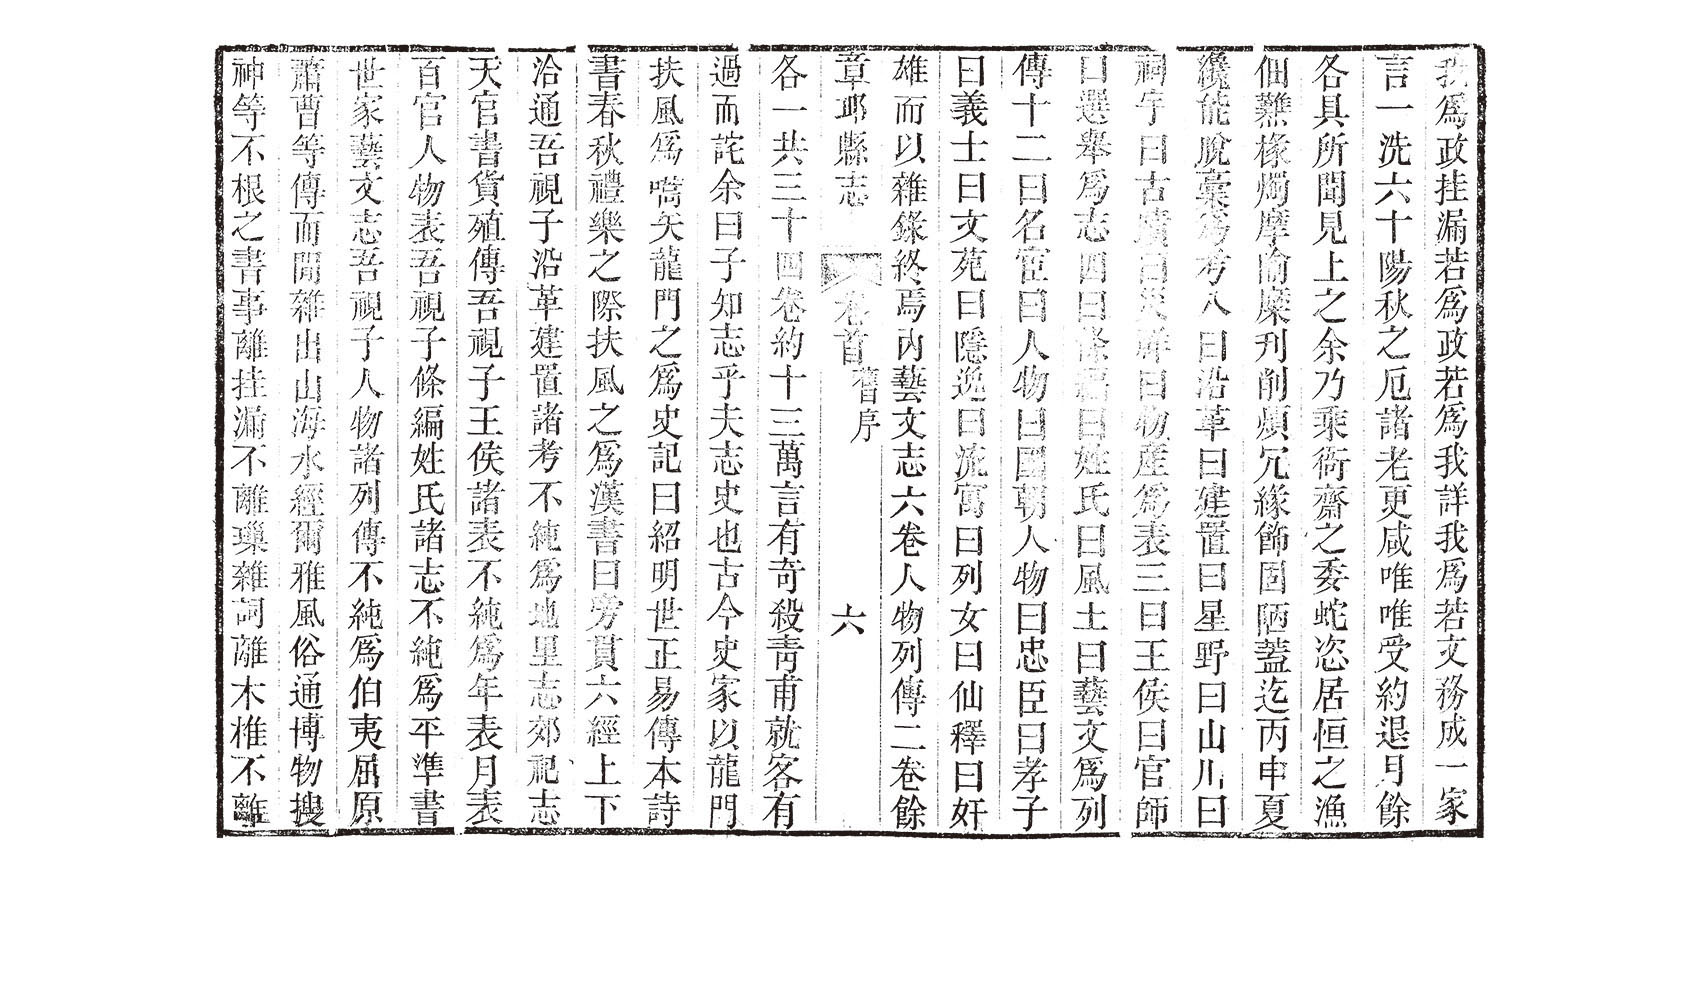 我爲政挂漏若爲政若爲我詳我爲若文務成一家
言一洗六十陽秋之厄諸老更咸唯唯受約退月餘
各具所聞見上之余乃乘衙齋之委蛇恣居恒之漁
佃爇椽燭摩隃糜刋削煩冗緣飾固陋蓋迄丙申夏
纔能脫藁爲考八曰沿革曰建置曰星野曰山川曰
祠宇曰古蹟曰災祥曰物産爲表三曰王侯曰官師
曰選舉爲志四曰條編曰姓氏曰風土曰藝文爲列
傳十二曰名宦曰人物曰國朝人物曰忠臣曰孝子
曰義士曰文苑曰隱逸曰流寓曰列女曰仙釋曰奸
雄而以雜錄終焉內藝文志六卷人物列傳二卷餘
章邱縣志 卷首 舊序 六
各一共三十四卷約十三萬言有奇殺靑甫就客有
過而詫余曰子知志乎夫志史也古今史家以龍門
扶風爲嚆矢龍門之爲史記曰紹明世正易傳本詩
書春秋禮樂之際扶風之爲漢書曰旁貫六經上下
洽通吾視子沿革建置諸考不純爲地里志郊祀志
天官書貨殖傳吾視子王侯諸表不純爲年表月表
百官人物表吾視子條編姓氏諸志不純爲平準書
世家藝文志吾視子人物諸列傳不純爲伯夷屈原
蕭曹等傳而閒雜出山海水經爾雅風俗通博物搜
神等不根之書事離挂漏不離璅雜詞離木椎不離